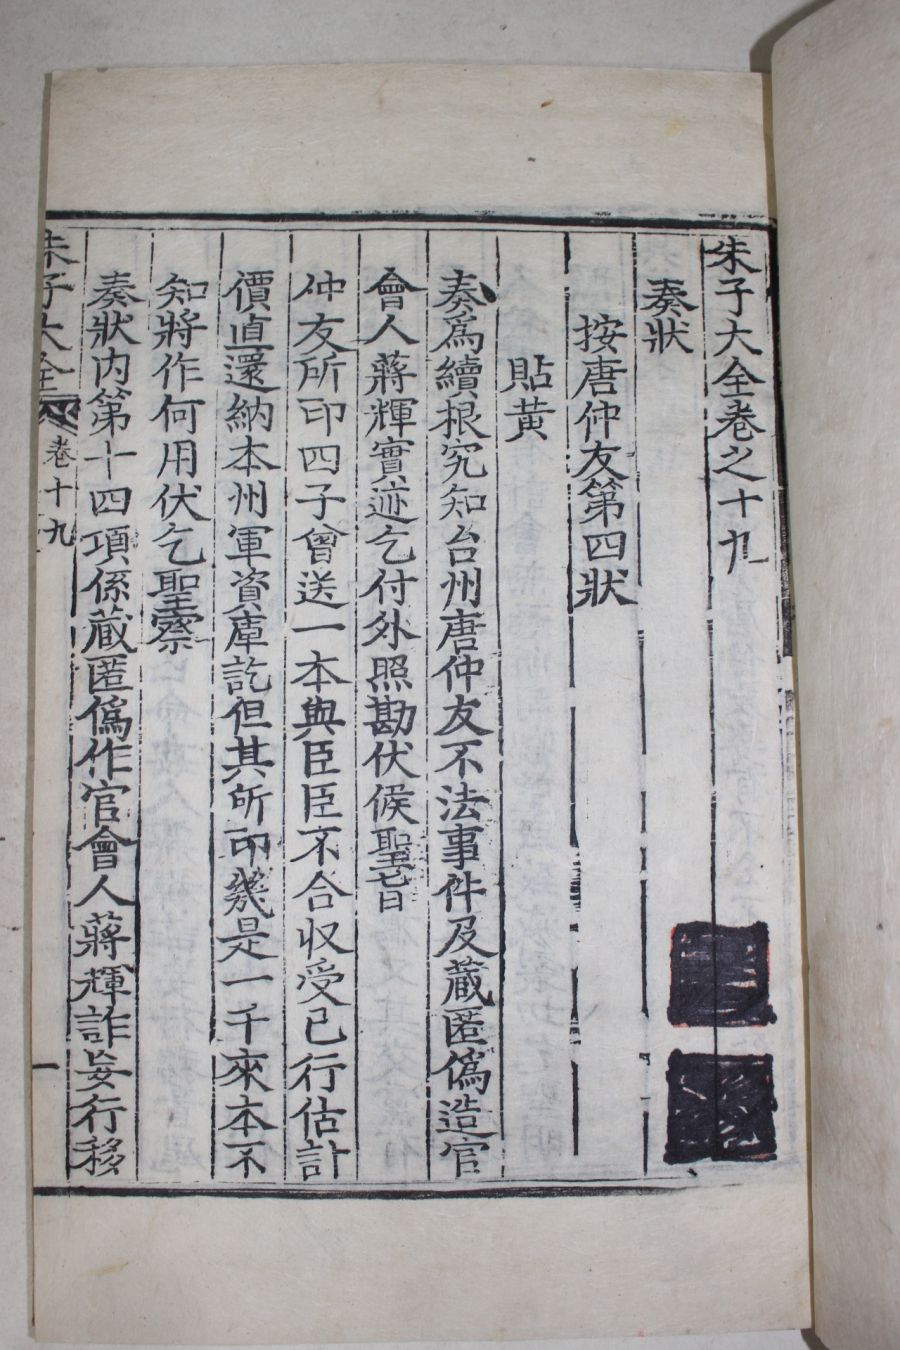 朱子大全卷之十九
奏狀
按唐仲友第四狀
貼黃
奏爲續根究知台州唐仲友不法事件及藏匿僞造官
會人蔣輝實迹乞付外照勘伏候聖旨
仲友所印四子曾送一本與臣臣不合収受已行估計
價直還納本州軍資庫訖但其所印幾是一千來本不
知將作何用伏乞聖察
奏狀內第十四項係藏匿僞作官會人蔣輝詐妄行移
朱子大全 卷十九 一